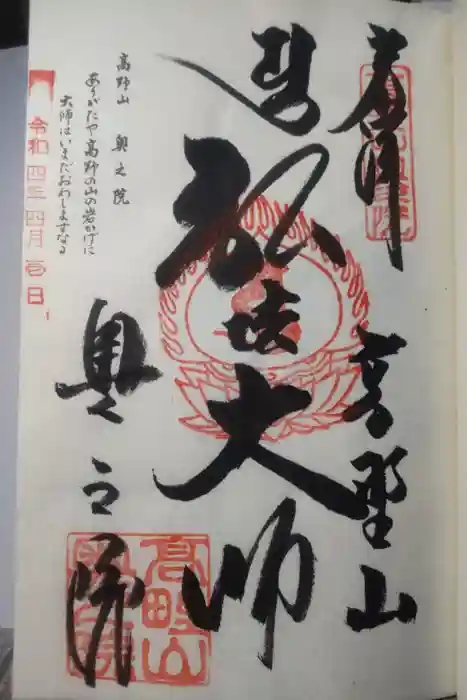 奉拝
高野山
弘法大師
奥之院
高野山
高野山 奥之院
ありがたや高野の山の岩かげに
大師はいまだおわしますなる
令和四年四月壱日